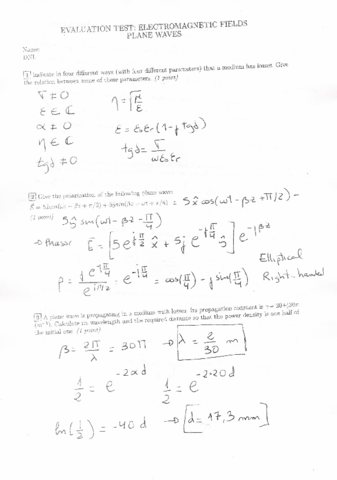 EVALUATION TEST: ELECTROMAGNETIC FIELDS
PLANE WAVES
Name:
DNI:
1 Indicate in four different ways (with four different parameters) that a medium has losses. Give
the relation between some of these parameters. (1 point)
σ ≠ 0
ε ∈ ℂ
α ≠ 0
η ∈ ℂ
tg d ≠ 0
η = √(μ/ε)
ε = ε₀εr(1 - j tg d)
tg d = σ/(ωε₀εr)
2 Give the polarization of the following plane wave:
= 5x̂ cos(ωt - βz + π/2) -
(2 points) 5ŷ sin(ωt - βz - π/4)
→ Phasor E̅ = [5 e^{jπ/2} x̂ + 5j e^{-jπ/4} ŷ] e^{-jβz}
ρ = j e^{-jπ/4} / e^{jπ/2} = e^{-jπ/4} = cos(π/4) - j sin(π/4)
Elliptical
Right-handed
3 A plane wave is propagating in a medium with losses. Its propagation constant is γ = 20+j30π
(m⁻¹). Calculate its wavelength and the required distance so that the power density is one half of
the initial one. (1 point)
β = 2π/λ = 30π → λ = 2/30 m
1/2 = e^{-2αd} 1/2 = e^{-2·20d}
ln(1/2) = -40d → [d = 17,3 mm]